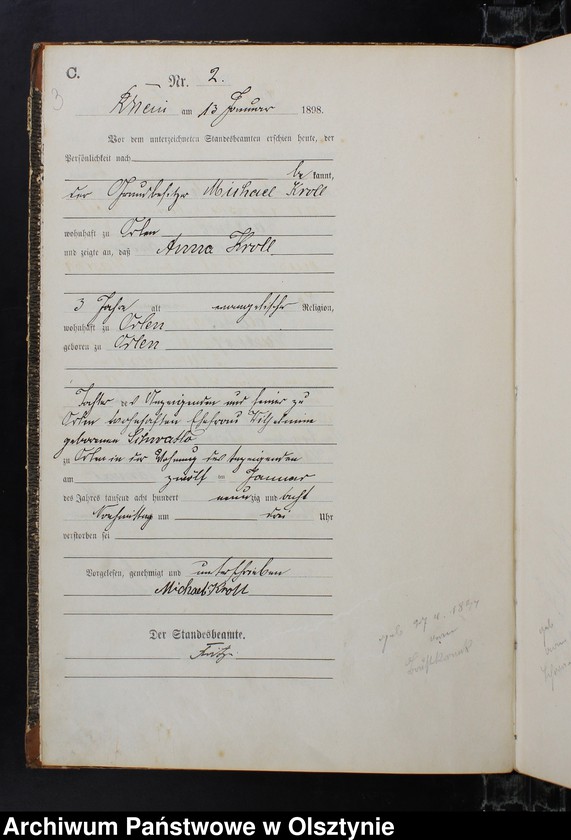 C.
3
Nr. 2.
Rhein am 13 Januar 1898.
Vor dem unterzeichneten Standesbeamten erschien heute, der
Persönlichkeit nach
be kannt,
der Grundbesitzer Michael Kroll
wohnhaft zu Orlen
und zeigte an, daß Anna Kroll
3 Jahre alt evangelischer Religion,
wohnhaft zu Orlen
geboren zu Orlen
Tochter des Anzeigenden und seiner zu
Orlen wohnhaften Ehefrau Wilhelmine
geborenen
zu Orlen in der Wohnung des Anzeigenden
am zwölf ten Januar
des Jahres tausend acht hundert neunzig und acht
Nachmittag um drei Uhr
verstorben sei
Vorgelesen, genehmigt und unterschrieben
Michael Kroll
Der Standesbeamte.
Fritz
geb
Archiwum Państwowe w Olsztynie